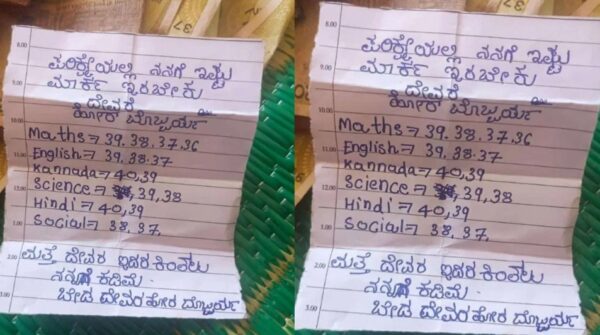 8.00
ಪರಿಕ್ಷೆಯಲ್ಲಿ ನನಗೆ ಇಷ್ಟು
9.00
ಮಾರ್ಕ್ ಇರಬೇಕು
ದೇವರ
10.00
ಹೋರ
Maths = 39.38.37.36
English = 39.38.37
11.00
Kannada = 40,39
Science = 39,38
12.00
Hindi = 40,39
1.00
Social = 38.37.
2.00
ಮತ್ತೆ ದೇವರ ಇದರ ಕಿಂತಲು
ನನಗೆ ಕಡಿಮೆ
3.00
ಬೇಡ ದೇವರ ಹೋರ
8.00
ಪರಿಕ್ಷೆಯಲ್ಲಿ ನನಗೆ ಇಷ್ಟು
9.00
ಮಾರ್ಕ್ ಇರಬೇಕು
ದೇವರ
10.00
ಹೋರ
Maths = 39.38.37.36
English = 39.38.37
11.00
Kannada = 40,39
Science = 39,38
12.00
Hindi = 40,39
1.00
Social = 38.37.
2.00
ಮತ್ತೆ ದೇವರ ಇದರ ಕಿಂತಲು
ನನಗೆ ಕಡಿಮೆ
3.00
ಬೇಡ ದೇವರ ಹೋರ